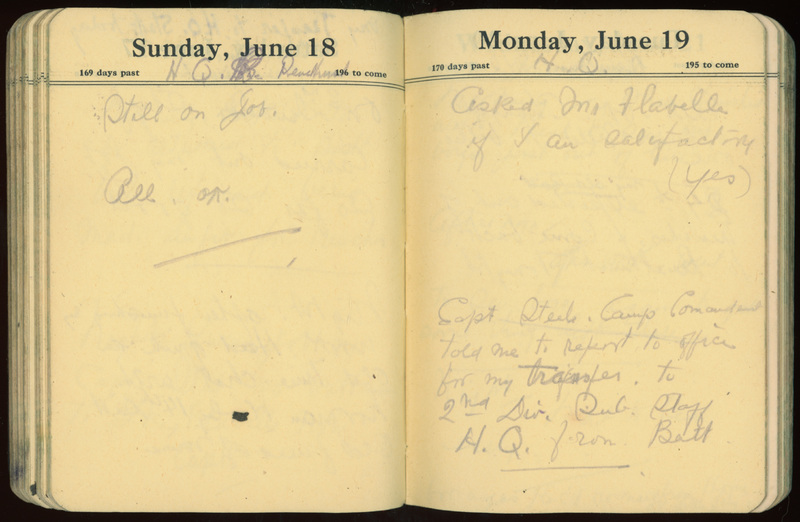 Sunday, June 18
169 days past
196 to come
H Q.
Still on Job.
All. ok.
Monday, June 19
170 days past
195 to come
H. Q.
Asked Mr Flabelle
if I am satisfactory
(Yes)
Capt Steele. Camp Comandant
told me to report to office
for my transfer. to
2nd Div. Sub. Staff
H. Q. from Batt.